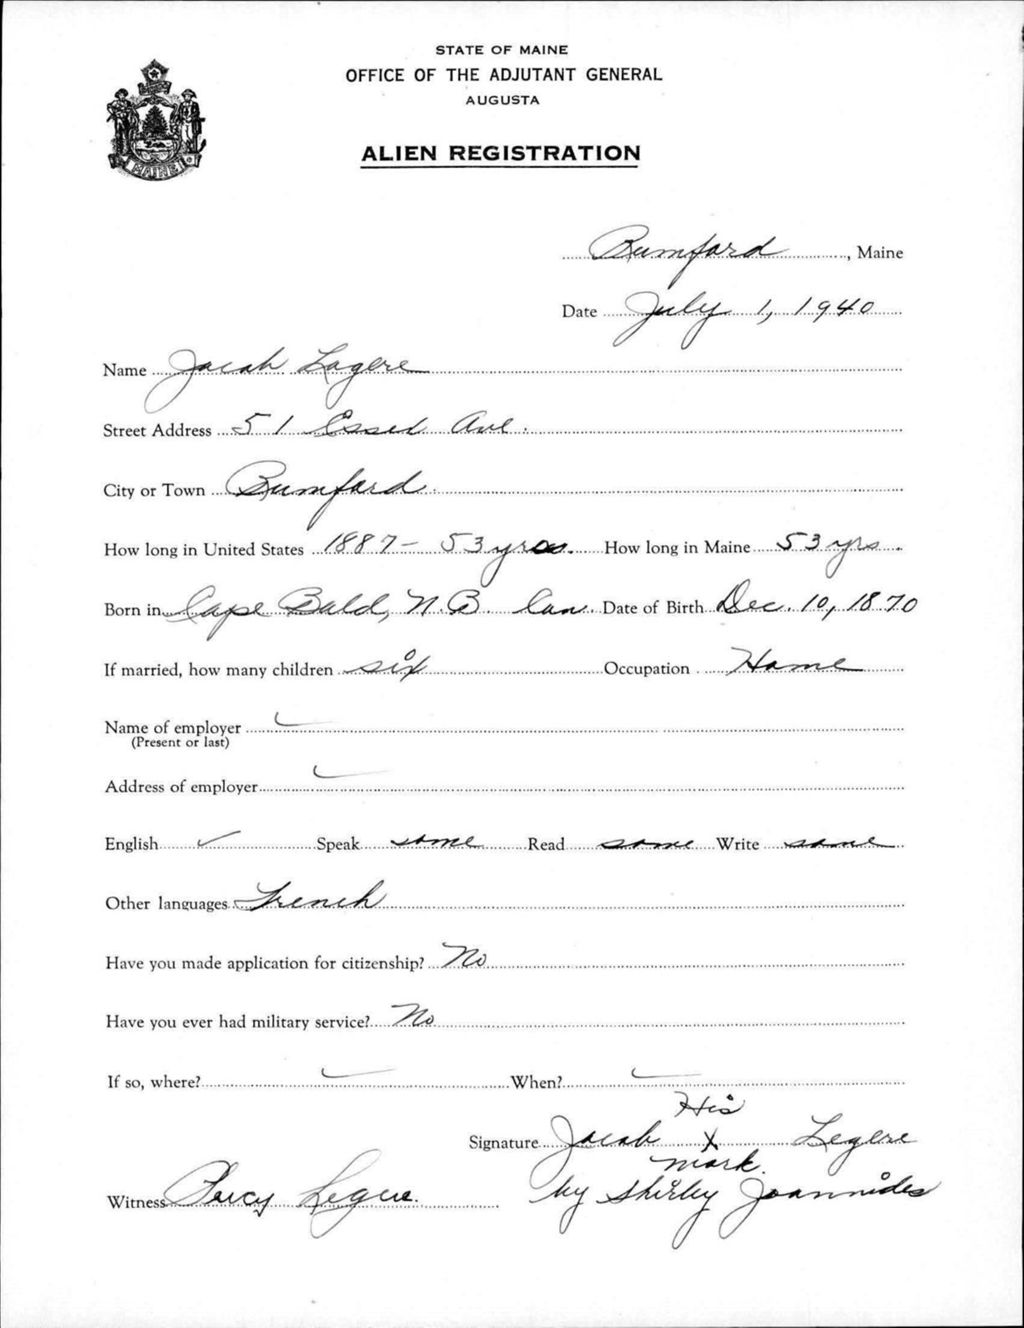 STATE OF MAINE
OFFICE OF THE ADJUTANT GENERAL
AUGUSTA
ALIEN REGISTRATION
MAINE
Rumford, Maine
Date July 1, 1940
Name Jacob Lagere
Street Address 51 Essex Ave.
City or Town Rumford.
How long in United States 1887 – 53 yrs. How long in Maine 53 yrs.
Born in Cape Bald, N.B. Can. Date of Birth Dec. 10, 1870
If married, how many children six Occupation Home
Name of employer
(Present or last)
Address of employer
English ✓ Speak some Read some Write some
Other languages French
Have you made application for citizenship? No
Have you ever had military service? No
If so, where? When?
His
Signature Jacob X Legere
mark.
Witness Percy Legere. by Shirley Joannides